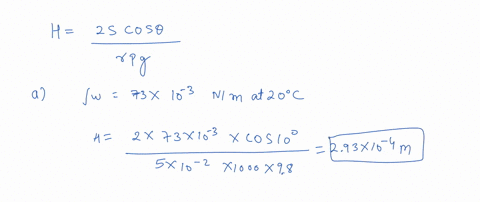 H = 2S cosθ / rρg
a) ∫w = 73 × 10⁻³ N/m at 20°C
H = 2 × 73×10⁻³ × COS10⁰ / 5×10⁻² ×1000×9.8 = 2.93×10⁻⁴ m